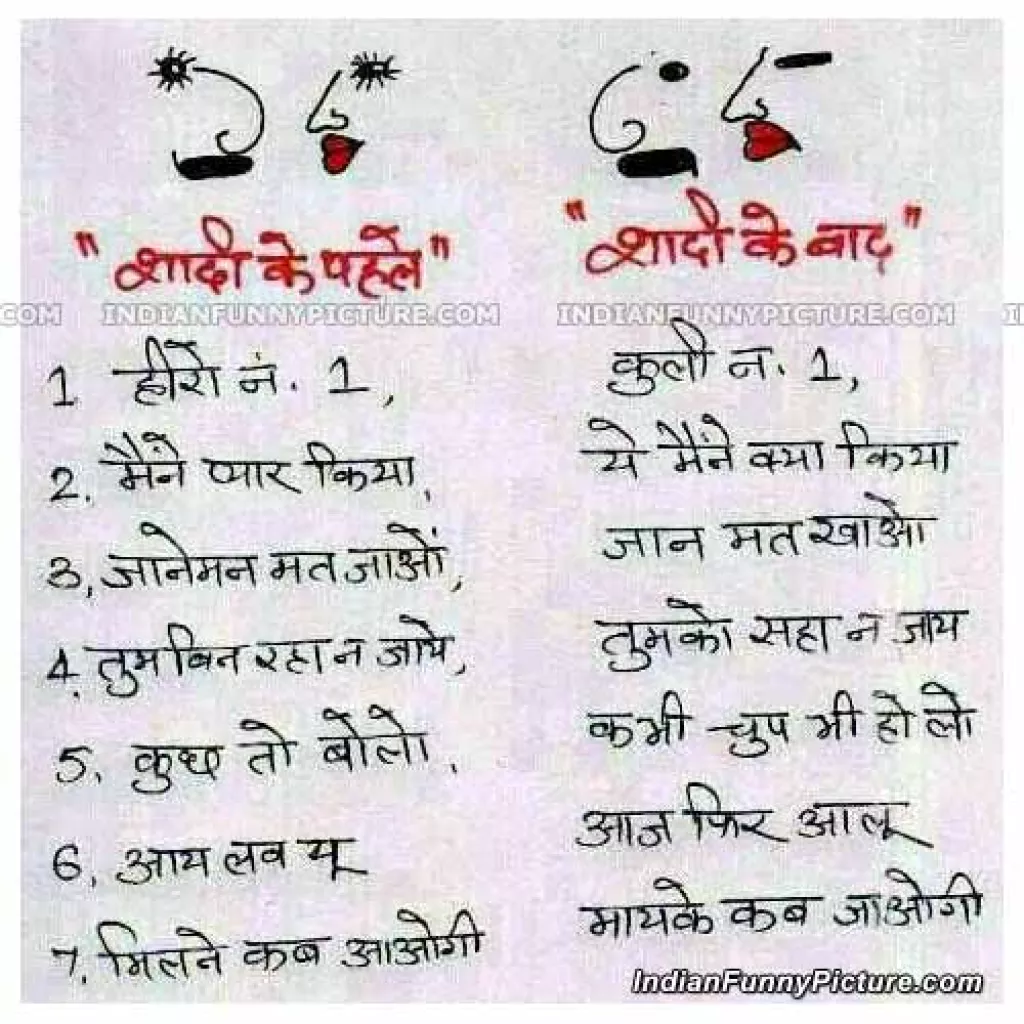 "शादी के पहले"
"शादी के बाद"
INDIANFUNNYPICTURE.COM
INDIANFUNNYPICTURE.COM
1. हीरो नं. 1,
कुली न. 1,
2. मैंने प्यार किया,
ये मैंने क्या किया
3. जानेमन मत जाओं,
जान मत खाओ
4. तुम बिन रहा न जाये,
तुमको सहा न जाय
5. कुछ तो बोलो,
कभी चुप भी हो लो
6. आय लव यू
आज फिर आलू
7. मिलने कब आओगी
मायके कब जाओगी
IndianFunnyPicture.com